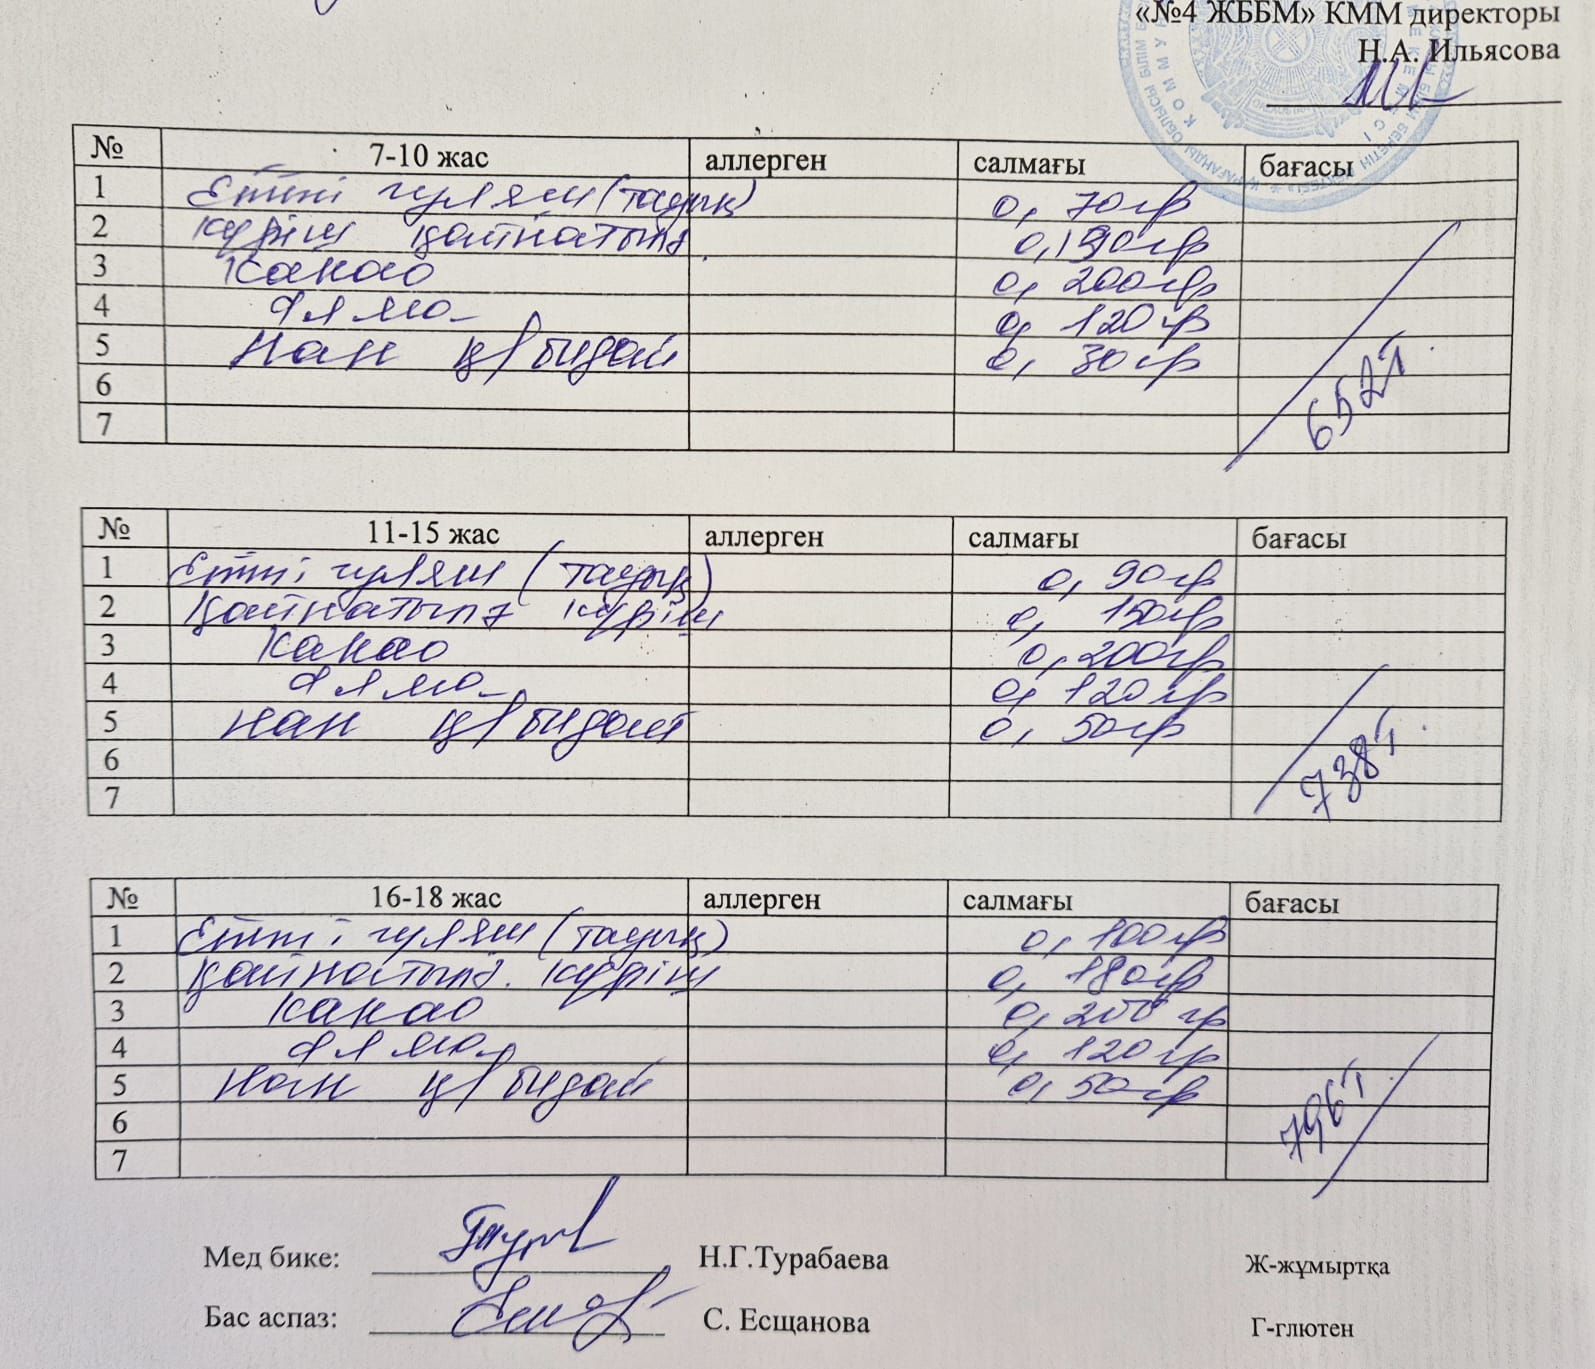 «№4 ЖББМ» КММ директоры
Н.А. Ильясова
№ 7-10 жас аллерген салмағы бағасы
1 Етті гуляш (тауық) 0, 70гр
2 күріш қайнатылғ. 0,130гр
3 Какао 0, 200гр
4 Алма 0, 120 гр
5 Нан қ/бидай 0, 30гр
6
7
652т.
№ 11-15 жас аллерген салмағы бағасы
1 Етті гуляш (тауық) 0, 90гр
2 Қайнатылғ күріш 0, 150гр
3 Какао 0, 200гр
4 Алма 0, 120гр
5 нан қ/бидай 0, 50гр
6
7
738т.
№ 16-18 жас аллерген салмағы бағасы
1 Етті гуляш (тауық) 0, 100гр
2 Қайнатылғ. күріш 0, 180гр
3 какао 0, 200 гр
4 Алма 0, 120гр
5 нан қ/бидай 0, 50гр
6
7
796т
Мед бике: Н.Г.Турабаева Ж-жұмыртқа
Бас аспаз: С. Есщанова Г-глютен